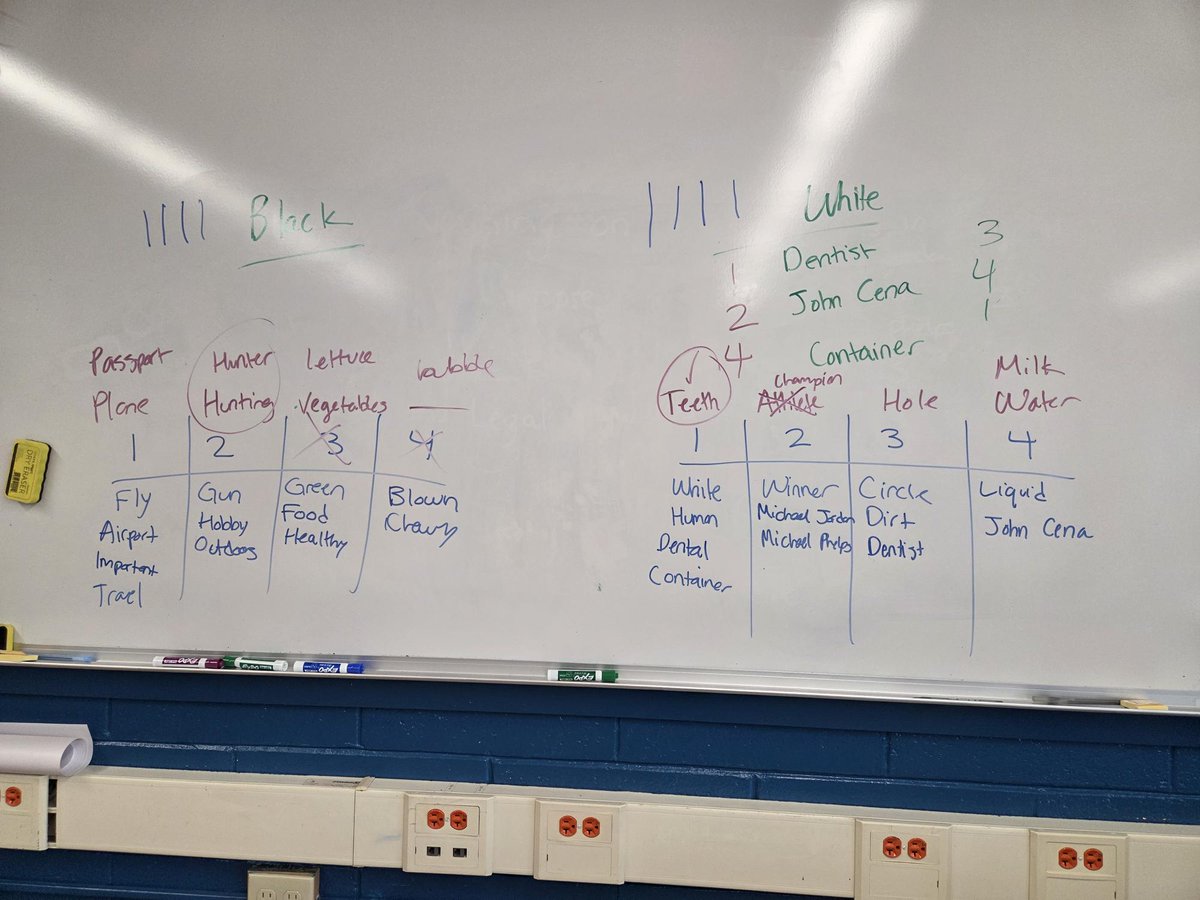 Black
White
Dentist 3
1 John Cena 4
2 1
4 Container
Passport Hunter Lettuce bubble
Plane Hunting Vegetables
1 2 3 4
Fly Gun Green Blown
Airport Hobby Food Chewy
Important Outdoors Healthy
Travel
Champion Milk
Teeth Athlete Hole Water
1 2 3 4
White Winner Circle Liquid
Human Michael Jordan Dirt John Cena
Dental Michael Phelps Dentist
Container
DRY ERASER
EXPO
EXPO
EXPO
EXPO